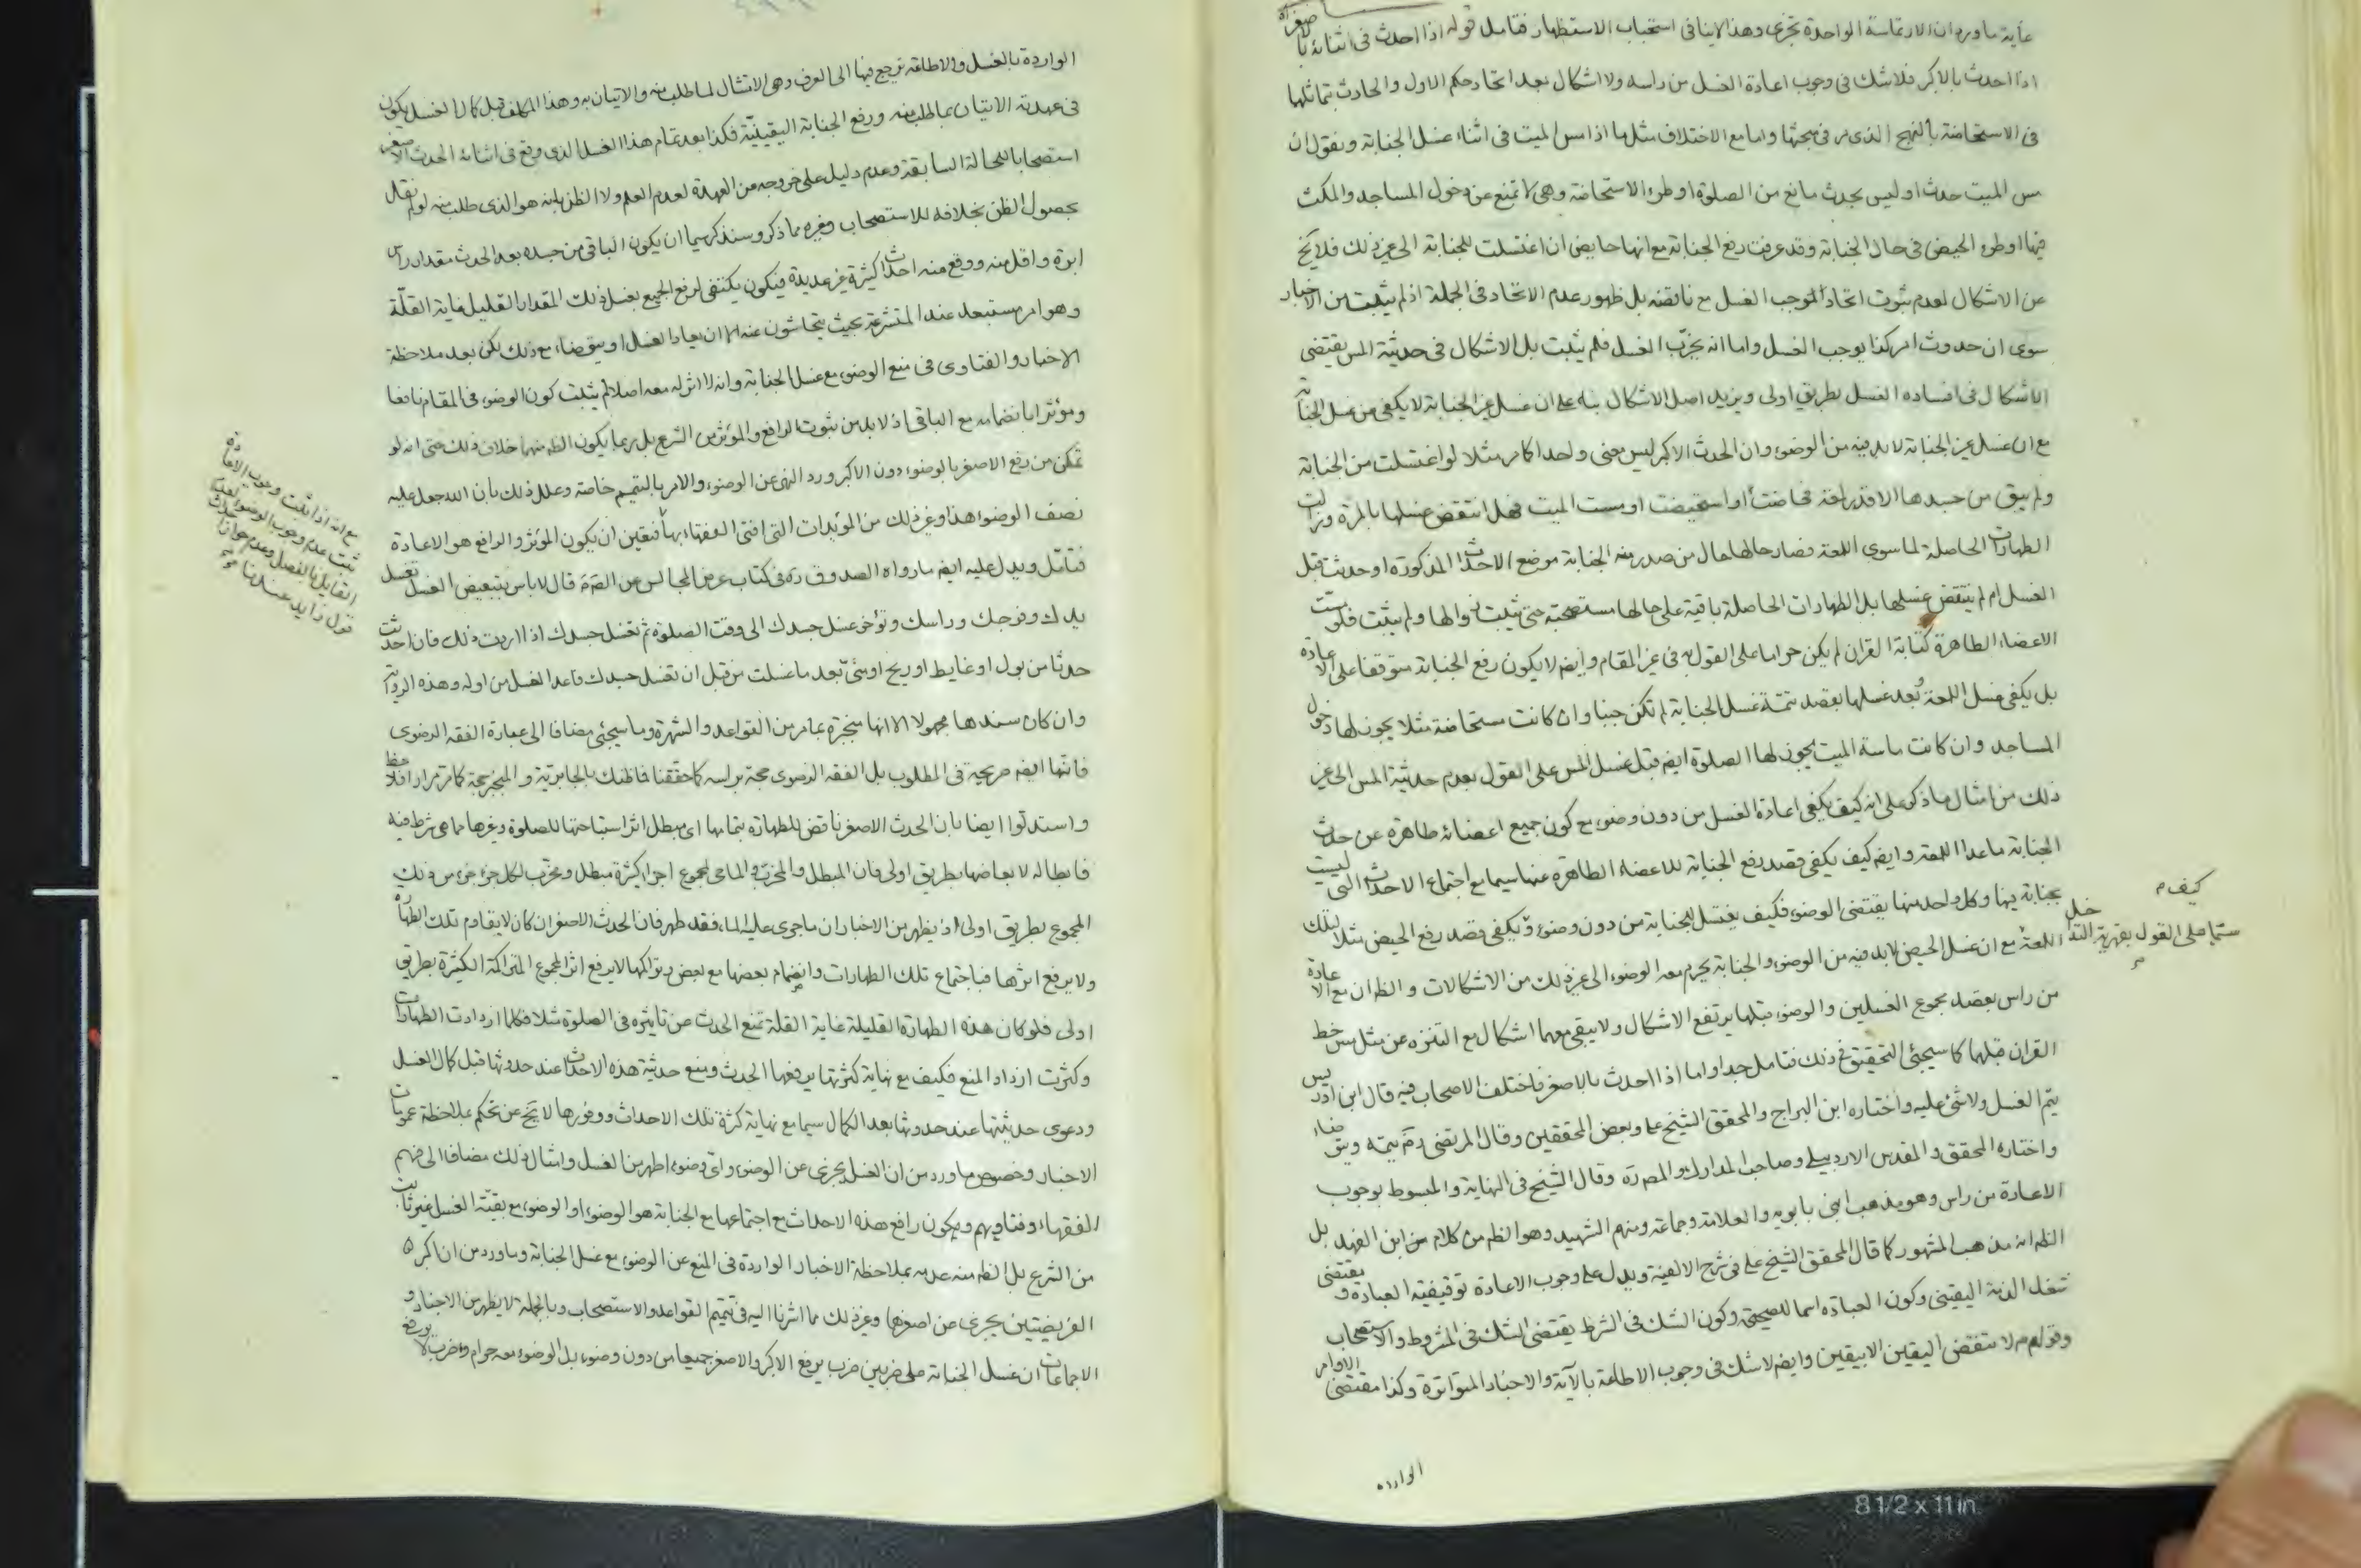 غاية ما ورد ان الارتماسة الواحدة تجزى وهذا لا ينافى استحباب الاستظهار فتامل قوله اذا احدث فى اثنائه بالاصغر اه
اذا احدث بالاكبر فلا شك فى وجوب اعادة الغسل من راسه ولا اشكال بعد اتحاد حكم الاول والحادث بتماثلهما
فى الاستحاضة بالنهج الذى مر فى مبحثها واما مع الاختلاف مثل ما اذا مس الميت فى اثناء غسل الجنابة ونقول ان
مس الميت حدث او ليس بحدث مانع من الصلوة او طرء الاستحاضة وهى لا تمنع عن دخول المساجد والمكث
فيها او طرء الحيض فى حال الجنابة وقد عرفت رفع الجنابة مع انها حايض ان اغتسلت للجنابة الى غير ذلك فلا يخ
عن الاشكال لعدم ثبوت اتحاد الموجب الغسل مع ناقضه بل ظهور عدم الاتحاد فى الجملة اذ لم يثبت من الاخبار
سوى ان حدوث امر كذا يوجب الغسل واما انه يخرّب الغسل فلم يثبت بل الاشكال فى حدثية المس يقتضى
الاشكال فى افساده الغسل بطريق اولى ويزيد اصل الاشكال بناء على ان غسل غير الجنابة لا يكفى من غسل الجنابة
مع ان غسل غير الجنابة لا بد فيه من الوضوء وان الحدث الاكبر ليس معنى واحدا كما مر مثلا لو اغتسلت من الجنابة
ولم يبق من جسدها الا قدر لمعة فحاضت او استحيضت او مست الميت فهل انتقض غسلها بالمرة وزالت
الطهارات الحاصلة لما سوى اللمعة فصار حالها حال من صدر منه الجنابة موضع الاحداث المذكورة او حدثت قبل
الغسل ام لم ينتقض غسلها بل الطهارات الحاصلة باقية على حالها مستصحبة حتى يثبت زوالها ولم يثبت فلو مسّت
الاعضاء الطاهرة كتابة القران لم يكن حراما على القول به فى غير المقام وايضا لا يكون رفع الجنابة متوقفا على الاعادة
بل يكفى غسل اللمعة بُعد غسلها بقصد تتمة غسل الجنابة لم تكن جنبا وان كانت مستحاضة مثلا يجوز لها دخول
المساجد وان كانت ماسة الميت يجوز لها الصلوة ايضا قبل غسل المس على القول بعدم حدثية المس الى غير
ذلك من امثال ما ذكر على انه كيف يكفى اعادة الغسل من دون وضوء مع كون جميع اعضائه طاهرة عن حدث
الجنابة ما عدا اللمعة وايضا كيف يكفى قصد رفع الجنابة للاعضاء الطاهرة عنها سيما مع اجتماع الاحداث التى ليست
بجنابة فيها وكل واحد منها يقتضى الوضوء فكيف يغتسل للجنابة من دون وضوء ويكفى قصد رفع الحيض مثلا لتلك
اللمعة مع ان غسل الحيض لا بد فيه من الوضوء والجنابة يحرم معه الوضوء الى غير ذلك من الاشكالات والظ ان مع الاعادة
من راس بقصد مجموع الغسلين والوضوء قبلها يرتفع الاشكال ولا يبقى معهما اشكال مع التنزه عن مثل مس خط
القران قبلها كما سيجئ التحقيق فى ذلك فتامل جدا واما اذا احدث بالاصغر فاختلف الاصحاب فيه قال ابن ادريس
يتم الغسل ولا شئ عليه واختاره ابن البراج والمحقق الشيخ على وبعض المحققين وقال المرتضى ره يتمه ويتوضاء
واختاره المحقق والمقدس الاردبيلى وصاحب المدارك والمص ره وقال الشيخ فى النهاية والمبسوط بوجوب
الاعادة من راس وهو مذهب ابنى بابويه والعلامة وجماعة ومنهم الشهيد وهو الظ من كلام ابن الفهد بل
الظ انه مذهب المشهور كما قال المحقق الشيخ على فى شرح الالفية ويدل على وجوب الاعادة توقيفية العبادة ويقتضى
شغل الذمة اليقينى وكون العبادة اسما للصحيحة وكون الشك فى الشرط يقتضى الشك فى المشروط والاستصحاب
وقولهم لا تنقض اليقين الا بيقين وايضا لا شك فى وجوب الاطاعة بالآية والاخبار المتواترة وكذا مقتضى الاوامر
الوارده
كيف م
الواردة بالغسل والاطاعة يرجع فيها الى العرف وهى الامتثال لما طلب منه والاتيان به وهذا المكلف قبل كمال الغسل يكون
فى عهدته الاتيان بما طلب منه ورفع الجنابة اليقينيّة فكذا بعد تمام هذا الغسل الذى وقع فى اثنائه الحدث الاصغر
استصحابا للحالة السابقة وعدم دليل على خروجه من العهدة لعدم العلم ولا الظن بانه هو الذى طلب منه لو لم نقل
بحصول الظن بخلافه للاستصحاب وغيره مما ذكر وسنذكر سيما ان يكون الباقى من جسده بعد الحدث مقدار راس
ابرة واقل منه ووقع منه احداث كثيرة غير عديدة فيكون يكتفى لرفع الجميع بغسل ذلك المقدار القليل غاية القلّة
وهو امر مستبعد عند المتشرعة بحيث يتحاشون عنه الا ان يعاد الغسل او يتوضاء مع ذلك لكن بعد ملاحظة
الاخبار والفتاوى فى منع الوضوء مع غسل الجنابة وانه لا اثر له معه اصلا لم يثبت كون الوضوء فى المقام نافعا
ومؤثرا بانضمامه مع الباقى اذ لا بد من ثبوت الرافع والمؤثر من الشرع بل ربما يكون الظ منهما خلاف ذلك حتى انه لو
تمكن من رفع الاصغر بالوضوء دون الاكبر ورد النهى عن الوضوء والامر بالتيمم خاصة وعلل ذلك بأن الله جعل عليه
نصف الوضوء هذا وغير ذلك من المؤيدات التى افتى الفقهاء بها فتعين ان يكون المؤثر والرافع هو الاعادة
فتامّل ويدل عليه ايضا ما رواه الصدوق ره فى كتاب عرض المجالس عن الص ع قال لا باس بتبعيض الغسل تغسل
يدك وفرجك وراسك وتؤخر غسل جسدك الى وقت الصلوة ثم تغسل جسدك اذا اردت ذلك فان احدثت
حدثا من بول او غايط او ريح او منىّ بعد ما غسلت من قبل ان تغسل جسدك فاعد الغسل من اوله وهذه الرواية
وان كان سندها مجهولا الا انها منجبرة بما مر من القواعد والشهرة وما سيجئ مضافا الى عبارة الفقه الرضوى
فانها ايضا صريحة فى المطلوب بل الفقه الرضوى حجة براسه كما حققنا فاظنك بالجابرية والمنجبر حجة كما مر مرارا فلاحظ
واستدلوا ايضا بان الحدث الاصغر ناقض للطهارة بتمامها اى مبطل اثر استباحتها للصلوة وغيرها مما هى شرط فيه
فابطاله لابعاضها بطريق اولى فان المبطل والمخرّب والماحى لمجموع اجزاء كثيرة مبطل ومخرّب لكل جزء جزء من ذلك
المجموع بطريق اولى اذ يظهر من الاخبار ان ما جرى عليه الماء فقد طهر فان الحدث الاصغر ان كان لا يقاوم تلك الطهارة
ولا يرفع اثرها فباجتماع تلك الطهارات وانضمام بعضها مع بعض وتراكمها لا يرفع اثر المجموع المتراكمة الكثيرة بطريق
اولى فلو كان هذه الطهارة القليلة غاية القلة تمنع الحدث عن تاثيره فى الصلوة مثلا فكلما ازدادت الطهارات
وكثرت ازداد المنع فكيف مع نهاية كثرتها يرفعها الحدث ومنع حدثية هذه الاحداث عند حدوثها قبل كمال الغسل
ودعوى حدثيتها عند حدوثها بعد الكمال سيما مع نهاية كثرة تلك الاحداث ووفورها لا يخ عن تحكم بملاحظة عمومات
الاخبار وخصوص ما ورد من ان الغسل يجزى عن الوضوء واى وضوء اطهر من الغسل وامثال ذلك مضافا الى فهم
الفقهاء وفتاويهم ويكون رافع هذه الاحداث مع اجتماعها مع الجنابة هو الوضوء او الوضوء مع بقيّة الغسل غير ثابت
من الشرع بل الظ منه عدمه بملاحظة الاخبار الواردة فى المنع عن الوضوء مع غسل الجنابة وما ورد من ان اكبر
الفريضتين يجزى عن اصغرها وغير ذلك مما اشرنا اليه فى تتميم القواعد والاستصحاب وبالجملة لا يظهر من الاخبار و
الاجماعات ان غسل الجنابة على ضربين ضرب يرفع الاكبر والاصغر جميعا من دون وضوء بل الوضوء معه حرام وضرب لا يرفع
مع انه اذا ثبت وجوب الاعادة
ثبت عدم وجوب الوضوء لعدم
القايل بالفصل وعدم جواز احداث
قول زايد عندنا